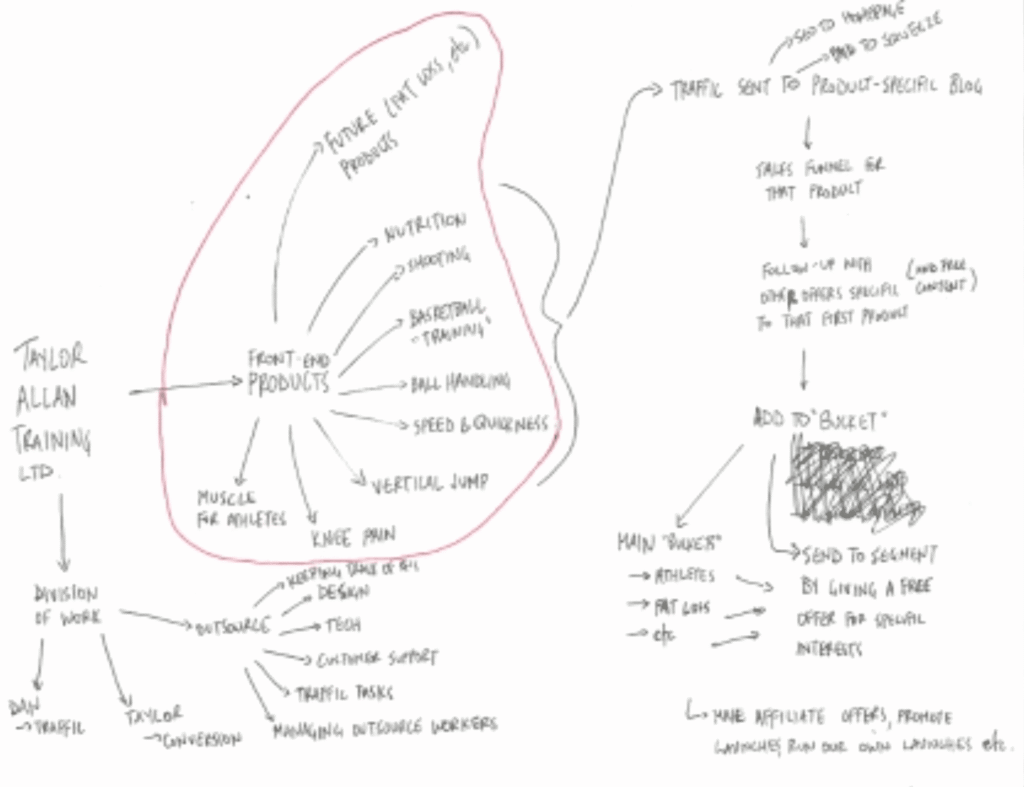 TAYLOR
ALLAN
TRAINING
LTD.
FRONT-END
PRODUCTS
FUTURE (FAT LOSS, etc)
PRODUCTS
NUTRITION
SHOOTING
BASKETBALL
"TRAINING"
BALL HANDLING
SPEED & QUICKNESS
VERTICAL JUMP
KNEE PAIN
MUSCLE
FOR ATHLETES
DIVISION
OF WORK
DAN
→ TRAFFIC
TAYLOR
→ CONVERSION
OUTSOURCE
KEEPING TRACK OF
DESIGN
TECH
CUSTOMER SUPPORT
TRAFFIC TASKS
MANAGING OUTSOURCE WORKERS
SEND TO HOMEPAGE
TO SQUEEZE
TRAFFIC SENT TO PRODUCT-SPECIFIC BLOG
SALES FUNNEL FOR
THAT PRODUCT
FOLLOW-UP WITH (AND FREE
OTHER OFFERS SPECIFIC CONTENT)
TO THAT FIRST PRODUCT
ADD TO "BUCKET"
MAIN "BUCKETS"
→ ATHLETES
→ FAT LOSS
→ etc
SEND TO SEGMENT
BY GIVING A FREE
OFFER FOR SPECIFIC
INTERESTS
MAKE AFFILIATE OFFERS, PROMOTE
LAUNCHES, RUN OUR OWN LAUNCHES etc.